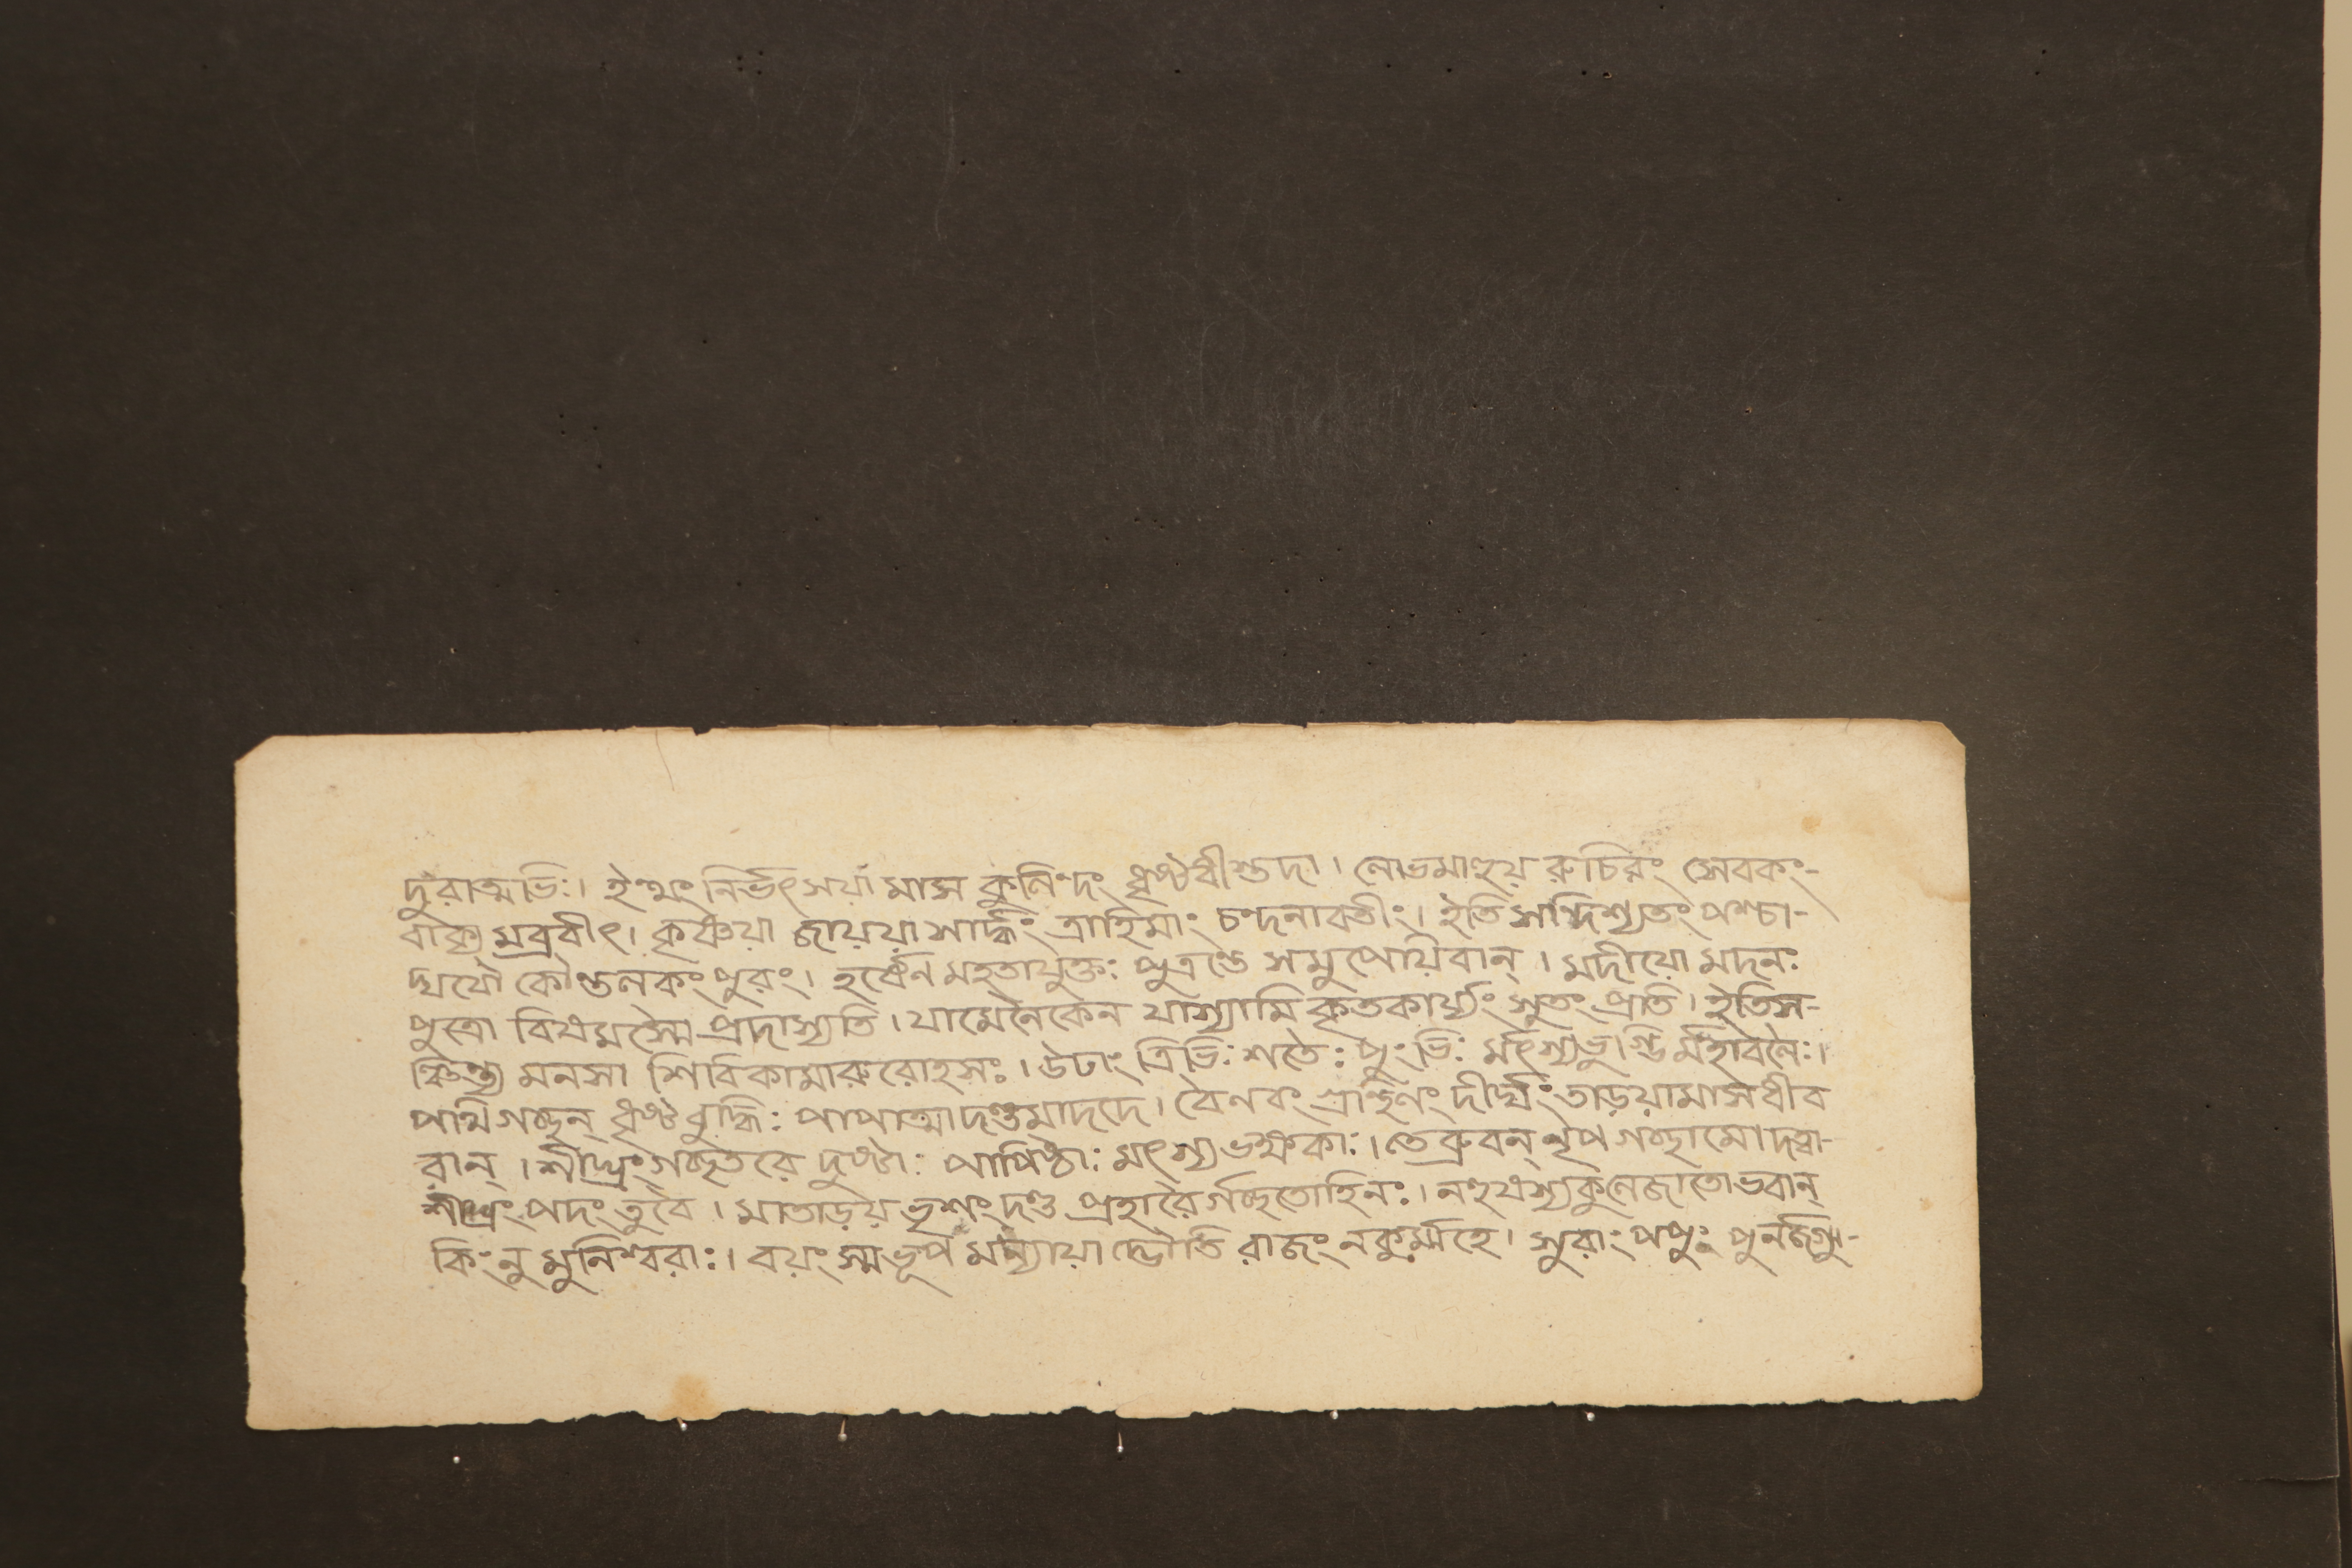 দুরাত্মভিঃ। ইত্থং নির্ভৎসয়া মাস কুলিন্দং ধৃষ্টধীস্তদা। লোভমাহূয় রুচিরং সেবকং-
বাক্য মব্রবীৎ। কৃষ্ণয়া জায়য়া সার্দ্ধং ত্রাহিমাং চন্দনাবতীং। ইতি সন্দিশ্যতং পশ্চা-
দ্যযৌ কৌণ্ডলকং পুরং। হর্ষেন মহতাযুক্তঃ পুত্রণ্ডে সমুপেয়িবান্। মদীয়ো মদনঃ
পুত্রো বিষমস্মৈ প্রদাস্যতি। যামেনৈকেন যাস্যামি কৃতকার্য্যং সুতং প্রতি। ইতিস-
ঞ্চিন্ত্য মনসা শিবিকামারুরোহসঃ। উঢাং ত্রিভিঃ শতৈঃ পুংভিঃ র্মৎস্যভুগ্ভি র্মহাবলৈঃ।
পথি গচ্ছন্ ধৃষ্টবুদ্ধিঃ পাপাত্মা দণ্ডমাদদে। বৈণবং দীর্ঘং তাড়য়ামাস ধীব
রান্। শীঘ্রং গচ্ছতরে দুষ্টাঃ পাপিষ্ঠাঃ মৎস্যভক্ষকাঃ। তেব্রুবন্ নৃপ গচ্ছামো দত্বা-
শীঘ্রং পদং তুবৈ। মাতাড়য় ভৃশং দণ্ড প্রহারৈ র্গচ্ছতোহিনঃ। নহুষস্যকুলেজাতো ভবান্
কিংনু মুনিশ্বরাঃ। বয়ং স্মভূপ মন্যায়া দ্ভৌতি রাজং নকুর্ম্মহে। সুরাং পপুঃ পুনর্জগ্মু-